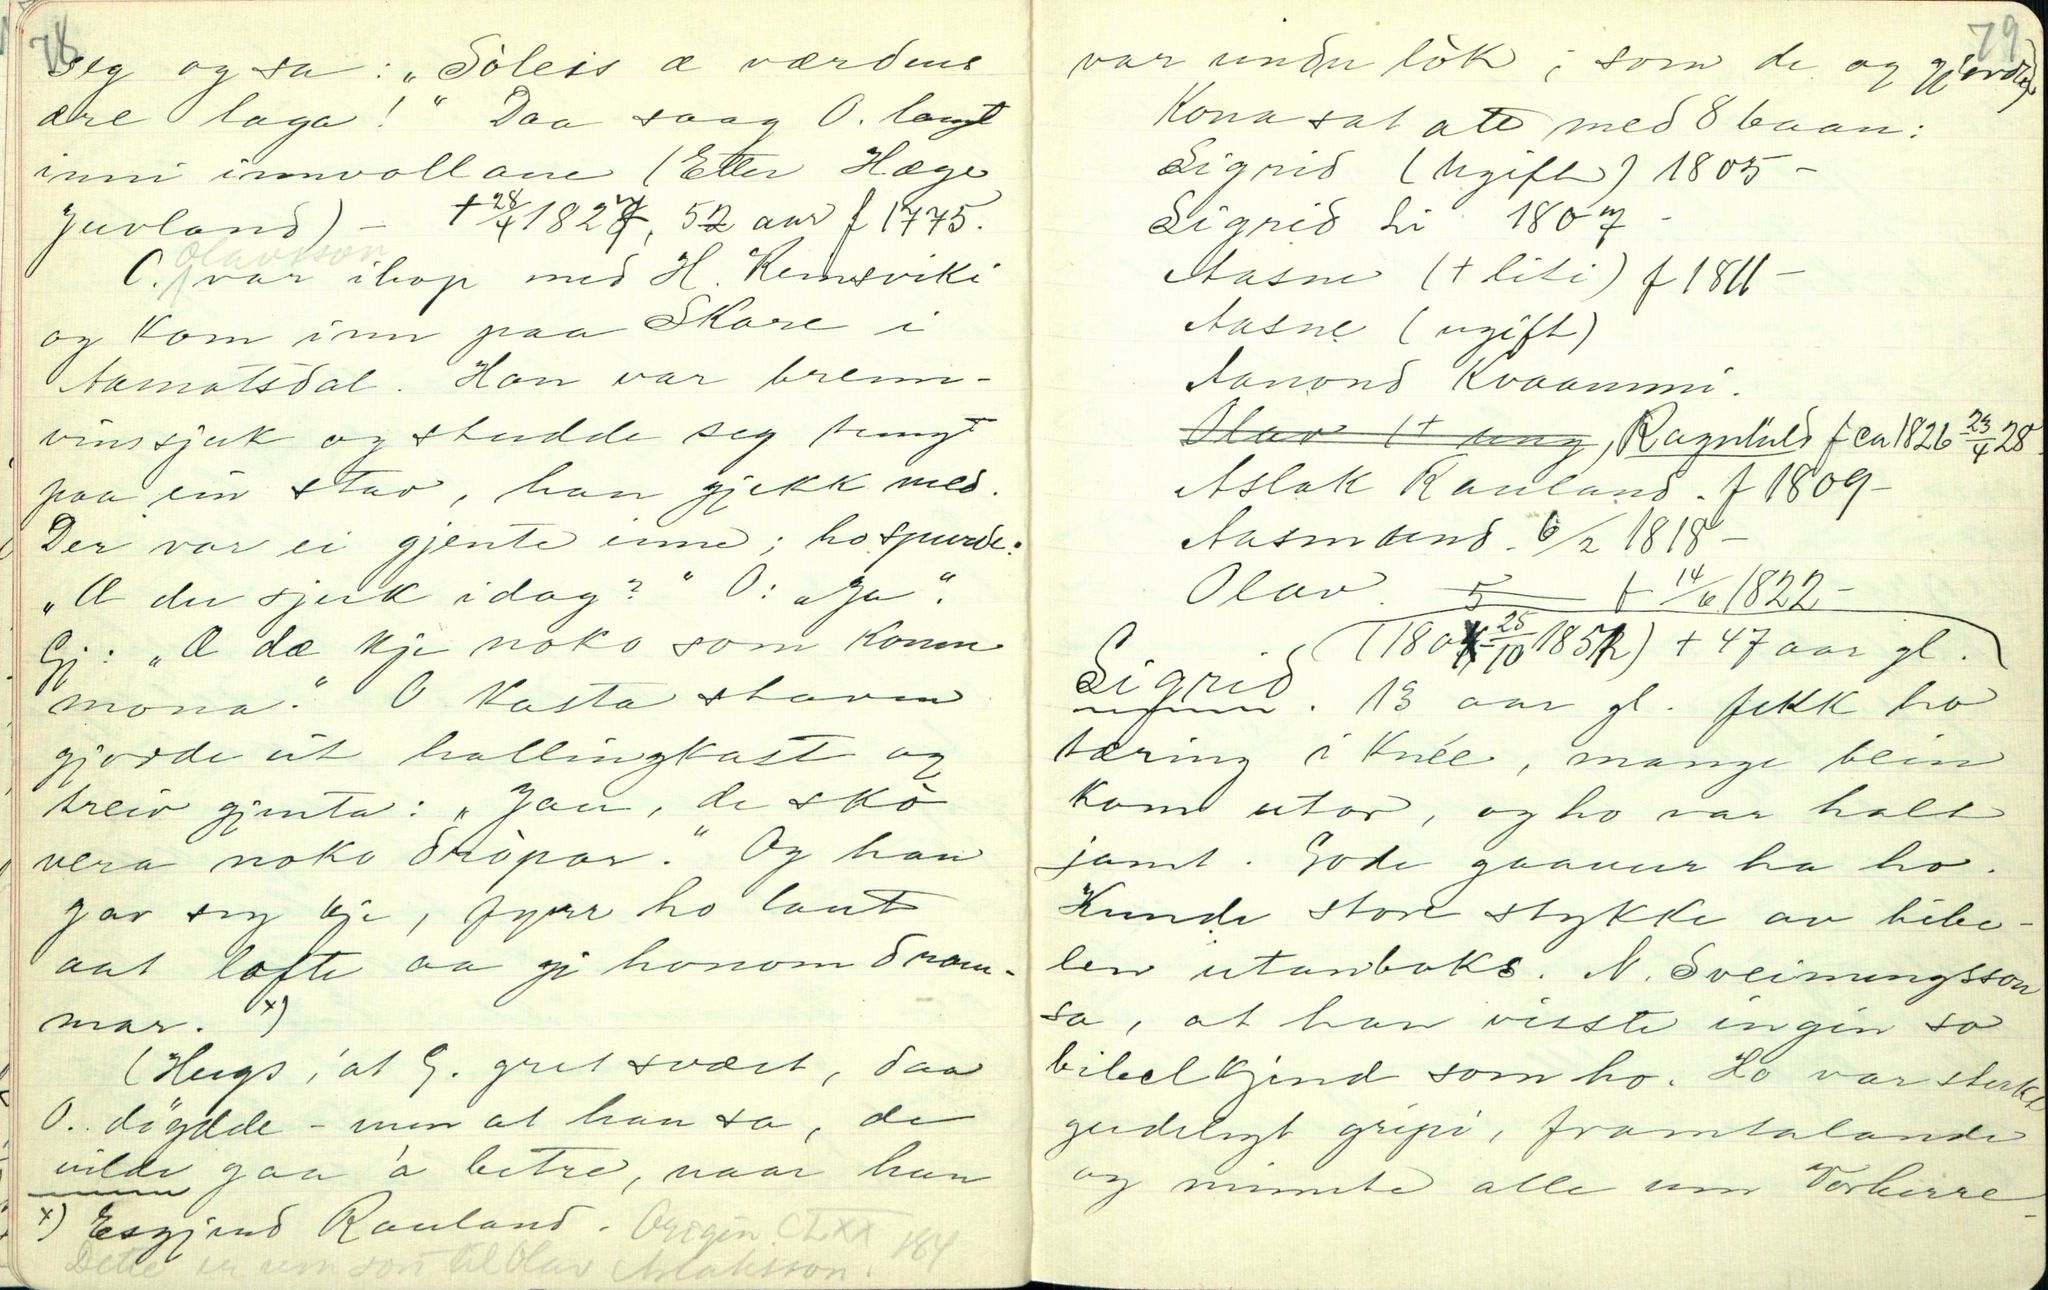 78
seg og sa: „Sòleis æ værdens
ære laga!" Daa saag O. langt
inni innvollane (Etter Hæge
Juvland) - + 28/4 1827, 52 aar f 1775.
Olavsson
O. var ihop med H. Remsviki
og kom inn paa Skare i
Aamotsdal. Han var brenn-
vinssjuk og studde seg tungt
paa ein stav, han gjekk med.
Der var ei gjente inne; ho spurde:
„Æ du sjuk idag?" O: „Ja".
Gj: „Æ dæ kje noko som konn
mona." O kasta staven
gjorde eit hallingkast og
treiv gjenta: „Jau, de skò
vera noko dròpar." Og han
gav seg kje, fyrr ho laut
aat lofte aa gj honom dram-
mar. x)
(Hugs, at G. gret svært, daa
O. døydde - men at han sa, de
vilde gaa 'o betre, naar han
x) Esgjerd Rauland. Origin. CLXX 184
Dette er um son til Olav Aslaksson.
79
var undu lòk; som de og gjorde)
Kona sat att med 8 baan:
Sigrid (Ugift) 1805 -
Sigrid Li 1807 -
Aasne (+ liti) f 1811 -
Aasne (ugift)
Aanond Kvaammi.
Olav (+ ung, Ragnhild f ca 1826 23/4 28
Aslak Rauland. f 1809 -
Aasmund. 6/2 1818 -
Olav. 5 f 14/6 1822 -
(1804 25/10 1852) + 47 aar gl.
Sigrid. 13 aar gl. fekk ho
tæring i knée, mange bein
kom utor, og ho var halt
jamt. Gode gaavur ha ho.
Kunde store stykke av bibe-
len utanboks. N. Sveinungsson
sa, at han visste ingin so
bibelkjend som ho. Ho var sterkt
gudelegt gripi, framtalande
og minnte alle um Vorherre